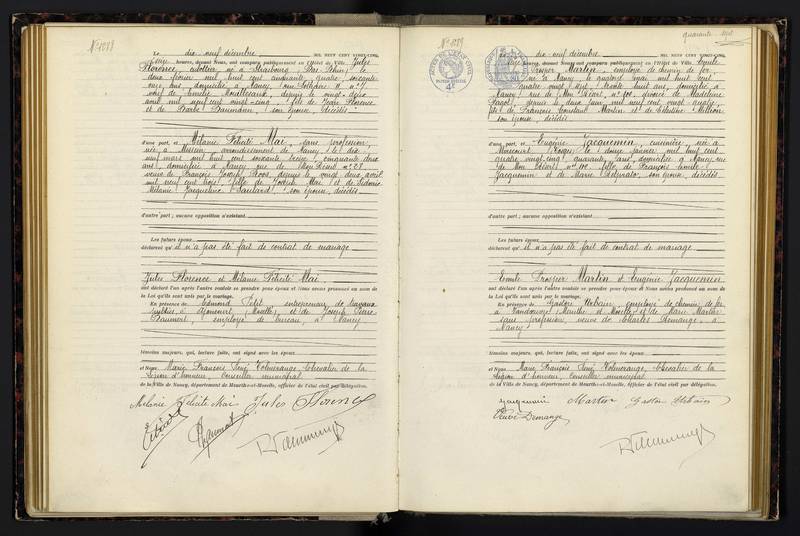 N° 1088
Le dix-neuf décembre MIL NEUF CENT VINGT-CINQ,
heures, devant Nous, ont comparu publiquement en l'Hôtel de Ville Jules
Florence, né à Strasbourg, (Bas Rhin), le
deux février mil huit cent cinquante quatre, soixante
onze ans, domicilié à Nancy, rue n° 4,
veuf de Emilie depuis le vingt-deux
avril mil neuf cent vingt-cinq, fils de Jean Florence
et de Barbe Baumann, son épouse, décédés
d'une part, et Mélanie Félicité Mai, sans profession,
née à arrondissement de Nancy, le dix
neuf mars mil huit cent soixante treize, cinquante deux
ans, domiciliée à Nancy, rue de Mon Désert n° 27
veuve de François Joseph Roos, depuis le vingt deux avril
mil neuf cent trois, fille de Joseph Mai et de Sidonie
Mélanie Jacqueline son épouse, décédés
d'autre part ; aucune opposition n'existant
Les futurs époux
déclarent qu'il n'a pas été fait de contrat de mariage
Jules Florence et Mélanie Félicité Mai,
ont déclaré l'un après l'autre vouloir se prendre pour époux et Nous avons prononcé au nom de
la Loi qu'ils sont unis par le mariage.
En présence de Edmond Petit, entrepreneur de travaux
publics à (Moselle) et de Joseph Pierre
Beaumont, employé de bureau, à Nancy
témoins majeurs, qui, lecture faite, ont signé avec les époux
et Nous Marie François René Volmerange Chevalier de la
Légion d'honneur, Conseiller municipal
de la Ville de Nancy, département de Meurthe-et-Moselle, officier de l'état civil par délégation.
Mélanie Félicité Mai Jules Florence
quarante-sept
N° 1089
Le dix-neuf décembre MIL NEUF CENT VINGT-CINQ,
heures, devant Nous, ont comparu publiquement en l'Hôtel de Ville Emile
Prosper Martin, employé de chemin de fer,
né à Nancy, le quatorze mai mil huit cent
quatre vingt sept, trente huit ans, domicilié à
Nancy, rue de Mon Désert, n° 100, divorcé de Madeleine
depuis le deux juin mil neuf cent vingt quatre,
fils de François Constant Martin et de Célestine
son épouse, décédés
d'une part, et Eugénie Jacquemin, cuisinière, née à
(Vosges) le douze janvier mil huit cent
quatre vingt cinq, quarante ans, domiciliée à Nancy, rue
de Mon Désert, n° 100, fille de François
Jacquemin et de Marie son épouse, décédés
d'autre part ; aucune opposition n'existant
Les futurs époux
déclarent qu'il n'a pas été fait de contrat de mariage
Emile Prosper Martin et Eugénie Jacquemin
ont déclaré l'un après l'autre vouloir se prendre pour époux et Nous avons prononcé au nom de
la Loi qu'ils sont unis par le mariage.
En présence de Gaston employé de chemin de fer
à Vandoeuvre (Meurthe et Moselle) et de Marie Martin
sans profession, veuve de Charles Demange, à
Nancy
témoins majeurs, qui, lecture faite, ont signé avec les époux
et Nous Marie François René Volmerange Chevalier de la
Légion d'honneur, Conseiller municipal
de la Ville de Nancy, département de Meurthe-et-Moselle, officier de l'état civil par délégation.
Jacquemin Martin Gaston
Veuve Demange